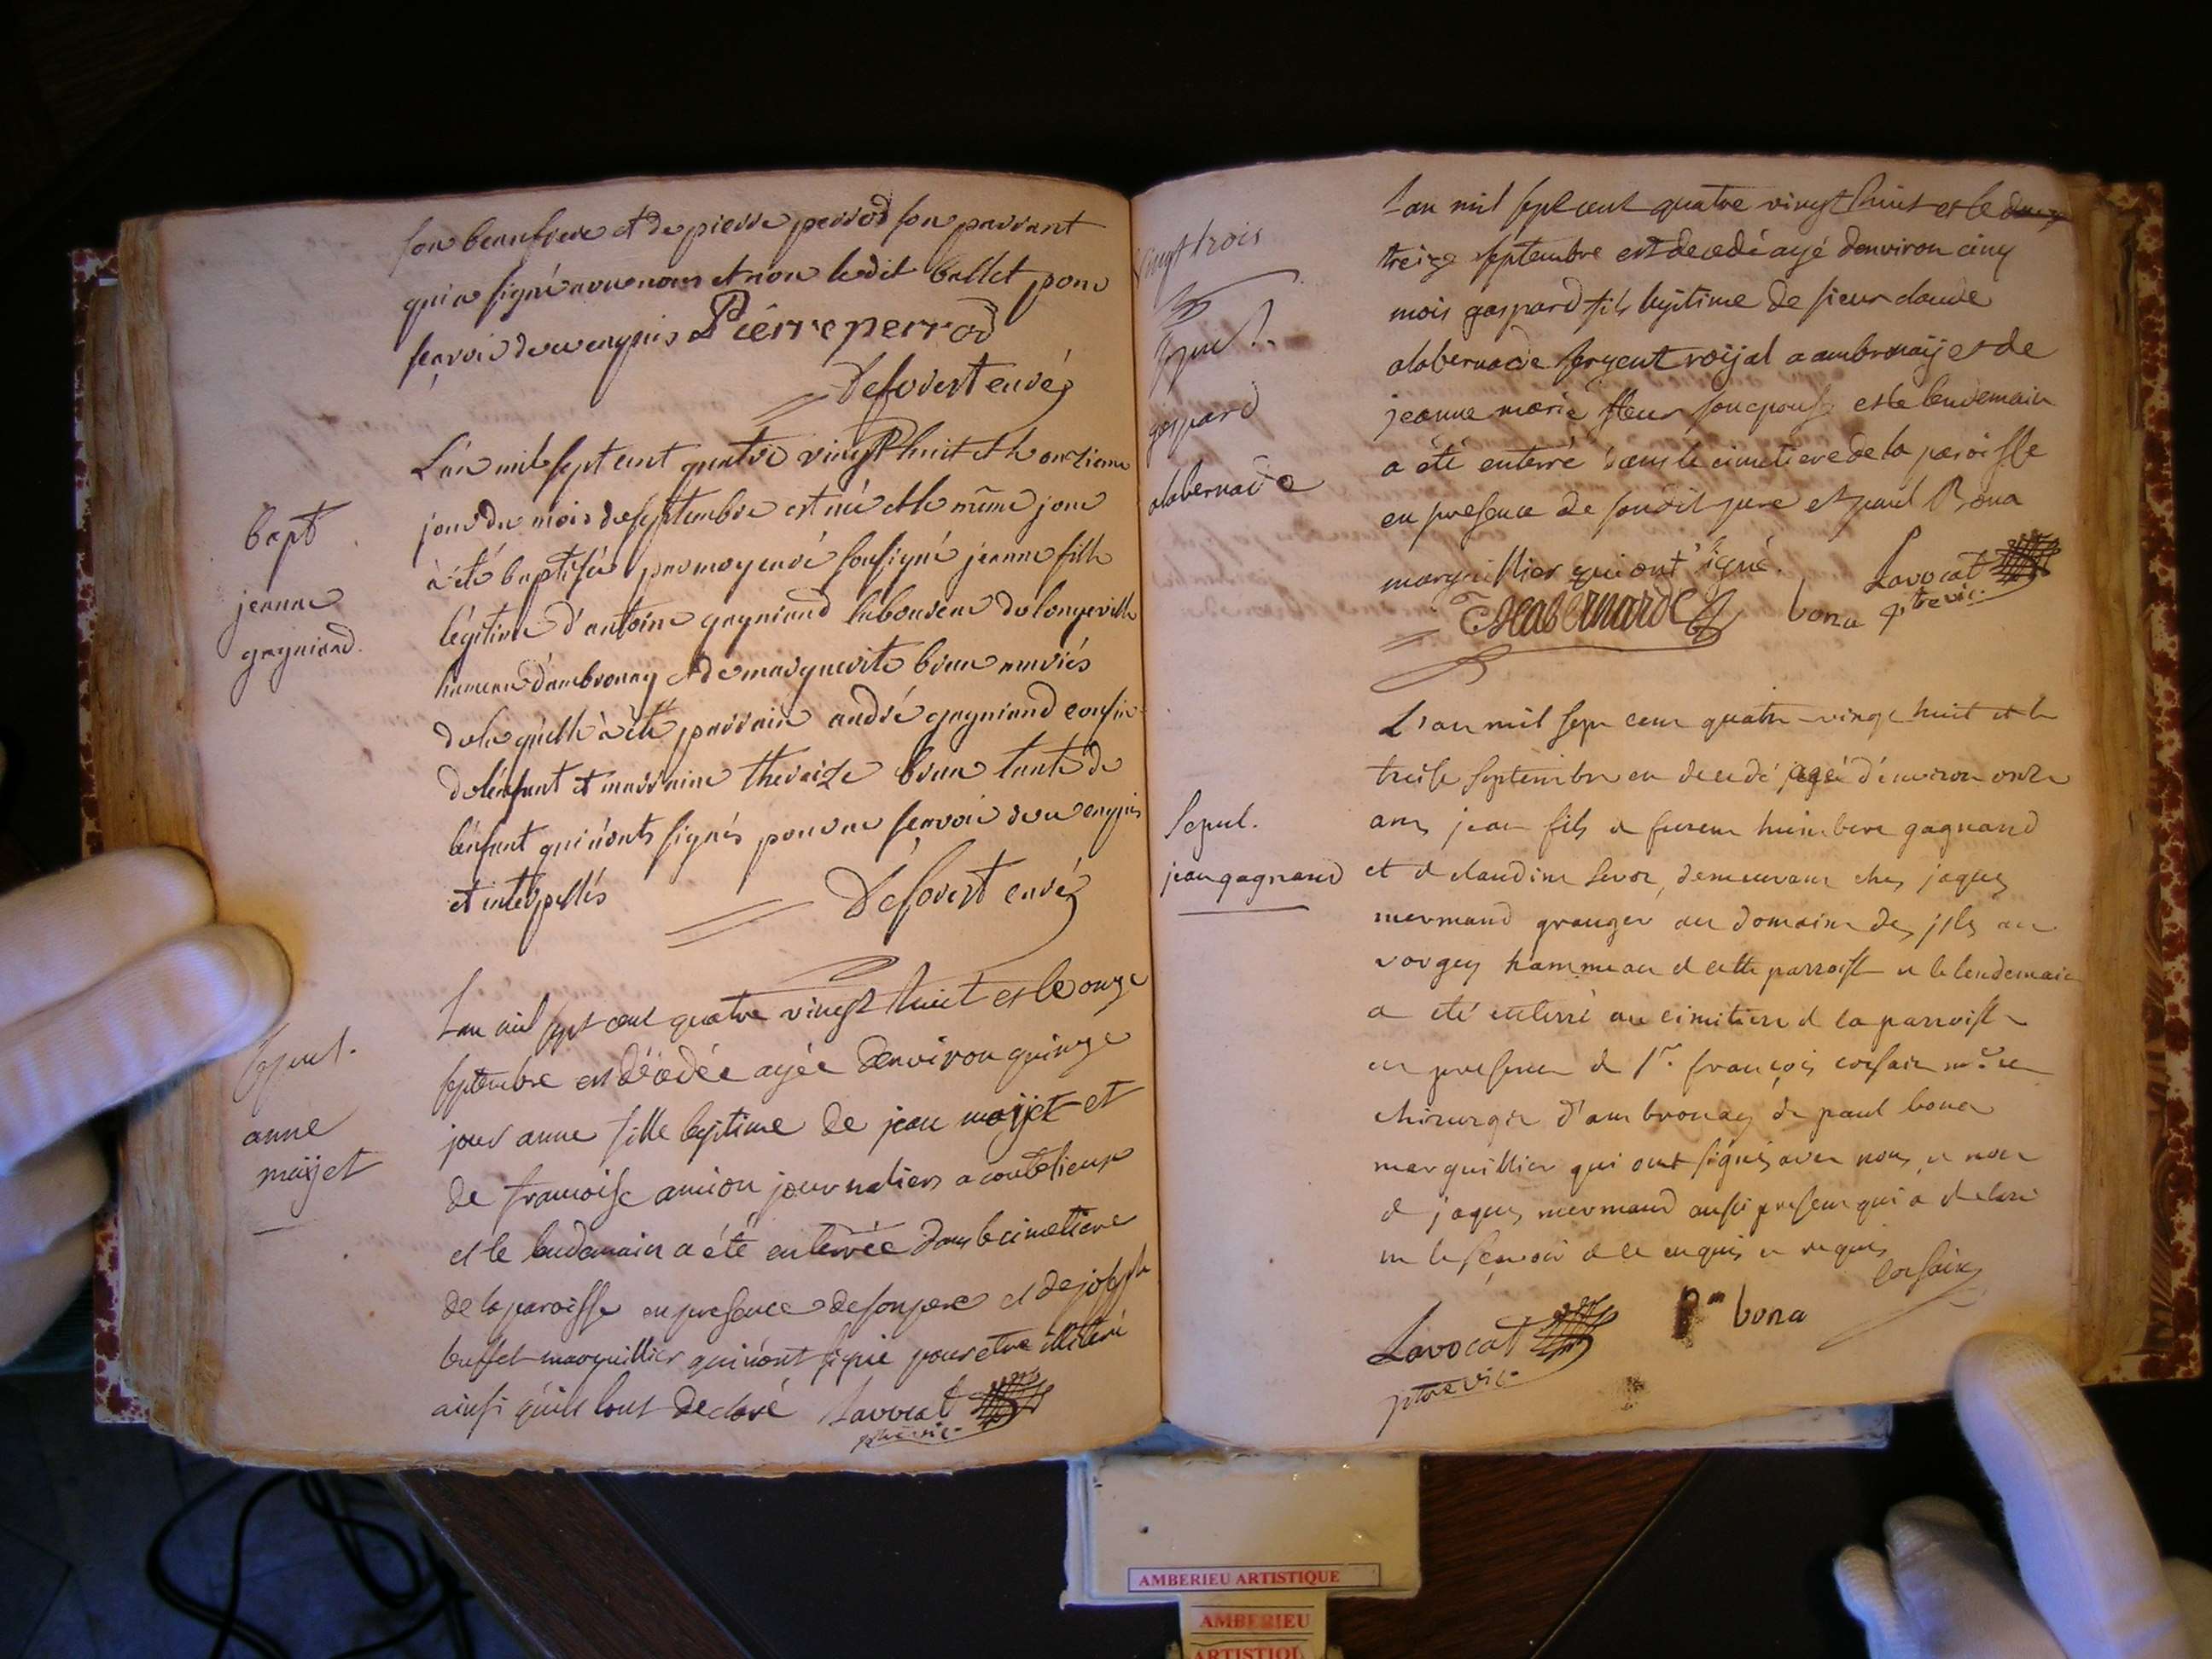 son beaufrere et de pierre perrod son parrant
qui a signé avec nous et non ledit ballet pour
scavoir de ce enquis Pierre perrod
Deforest curé
L'an mil sept cent quatre vingt huit et le onzieme
jour du mois de septembre est née et le même jour
à été baptisée par moy curé soussigné jeanne fille
légitime d'antoine gagniand laboureur de longeville
hameau d'ambronay et de marguerite brun mariés
de laquelle à été parrain andré gagniand cousin
de lenfant et marraine theraize brun tante de
lenfant qui n'onts signés pour ne scavoir de ce enquis
et interpellés Deforest curé
bapt
jeanne
gagniand.
Lan mil sept cent quatre vingt huit et le onze
septembre est décédée agée denviron quinze
jour anne fille legitime de jean maÿet et
de francoise amion journaliers a coutelieux
et le lendemain a été enterrée dans le cimetiere
de la paroisse en presence de son pere et de joseph
buffet marguillier qui n'ont signé pour etre illiteré
ainsi qu'ils lont declaré Lavocat
ptre vic.
Sepul.
anne
maÿet
vingt trois
Lan mil sept cent quatre vingt huit et le
treize septembre est decedé agé denviron cinq
mois gaspard fils legitime de sieur claude
alabernarde sergent roÿal a ambronaÿ et de
jeanne marie fleur son epouse et le lendemain
a été enterré dans le cimetiere de la paroisse
en presence de sondit pere et paul Bona
marguillier qui ont signé. Lavocat
bona ptre vic.
Sepul.
gaspard
alabernarde
L'an mil sept cent quatre-vingt huit et le
treise septembre est decedé agé d'environ onze
ans jean fils de fuseur humbert gagnand
et de claudine demeurant ches jaques
mermand granger au domaine des isles au
vorgey hammeau de cette parroisse et le lendemain
a eté enterré au cimitiere de la parroisse
en presence de sr. françois corsain me. en
chirurgie d'ambronay de paul bona
marguillier qui ont signés avec nous et non
de jaques mermand aussi present qui a declaré
ne le sçavoir de ce enquis et requis
corsain
Lavocat bona
ptre vic.
Sepul.
jean gagnand
AMBERIEU ARTISTIQUE
AMBERIEU
ARTISTIQU